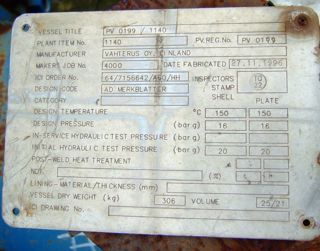 VESSEL TITLE PV 0199 / 1140
PLANT ITEM No. 1140 PV.REG.No. PV 0199
MANUFACTURER VAHTERUS OY, FINLAND
MAKERS JOB No. 4000 DATE FABRICATED 27.11.1996
ICI ORDER No. 64/7156642/A60/HH INSPECTORS STAMP
DESIGN CODE AD MERKBLATTER
CATEGORY SHELL PLATE
DESIGN TEMPERATURE °C 150 150
DESIGN PRESSURE (bar g) 16 16
IN-SERVICE HYDRAULIC TEST PRESSURE (bar g)
INITIAL HYDRAULIC TEST PRESSURE (bar g) 20 20
POST-WELD HEAT TREATMENT
NDT. (%)
LINING - MATERIAL/THICKNESS (mm)
VESSEL DRY WEIGHT (kg) 306 VOLUME 25/21
ICI DRAWING No.